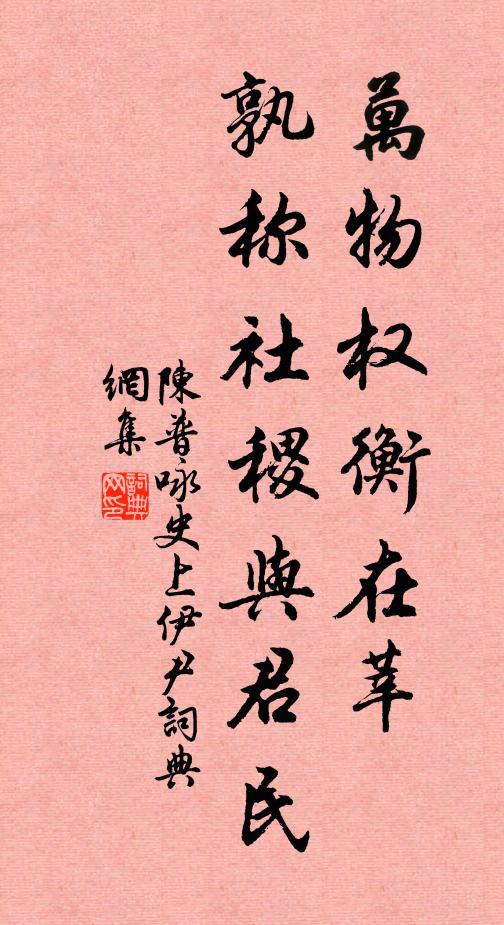 萬物权衡在莘
孰称社稷與君民
陳普咏史上伊尹詞典
網集
詞典
网印